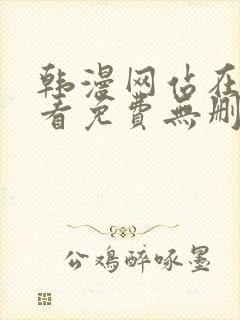 韩漫网站在
看免费無删
公鸡醉啄墨